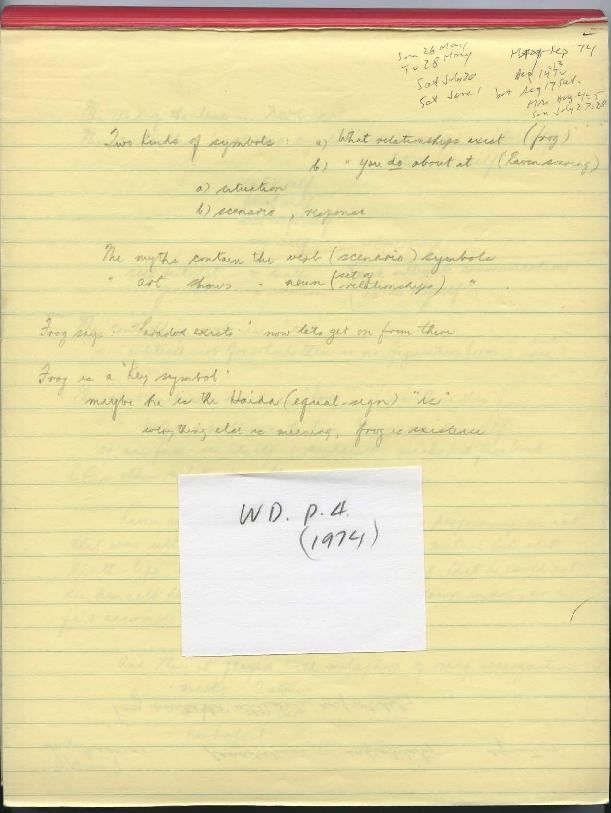 Sun 26 May
Tu 28 May
Sat July 20
Sat June 1
74
Aug 14
Sat Aug 17
Mon Aug 4-5
Sun July 27-28
Two kinds of symbols : a) What relationships exist (frog)
b) " you do about it (Raven soaring)
a) situation
b) scenario, response
The myths contain the verb (scenario) symbols
" art shows " noun (set of relationships) " .
Frog says 'Paradox exists' now let's get on from there
Frog is a 'Key symbol'
maybe he is the Haida (equal-sign) "is"
everything else is meaning, frog is existence
WD. P.4.
(1974)